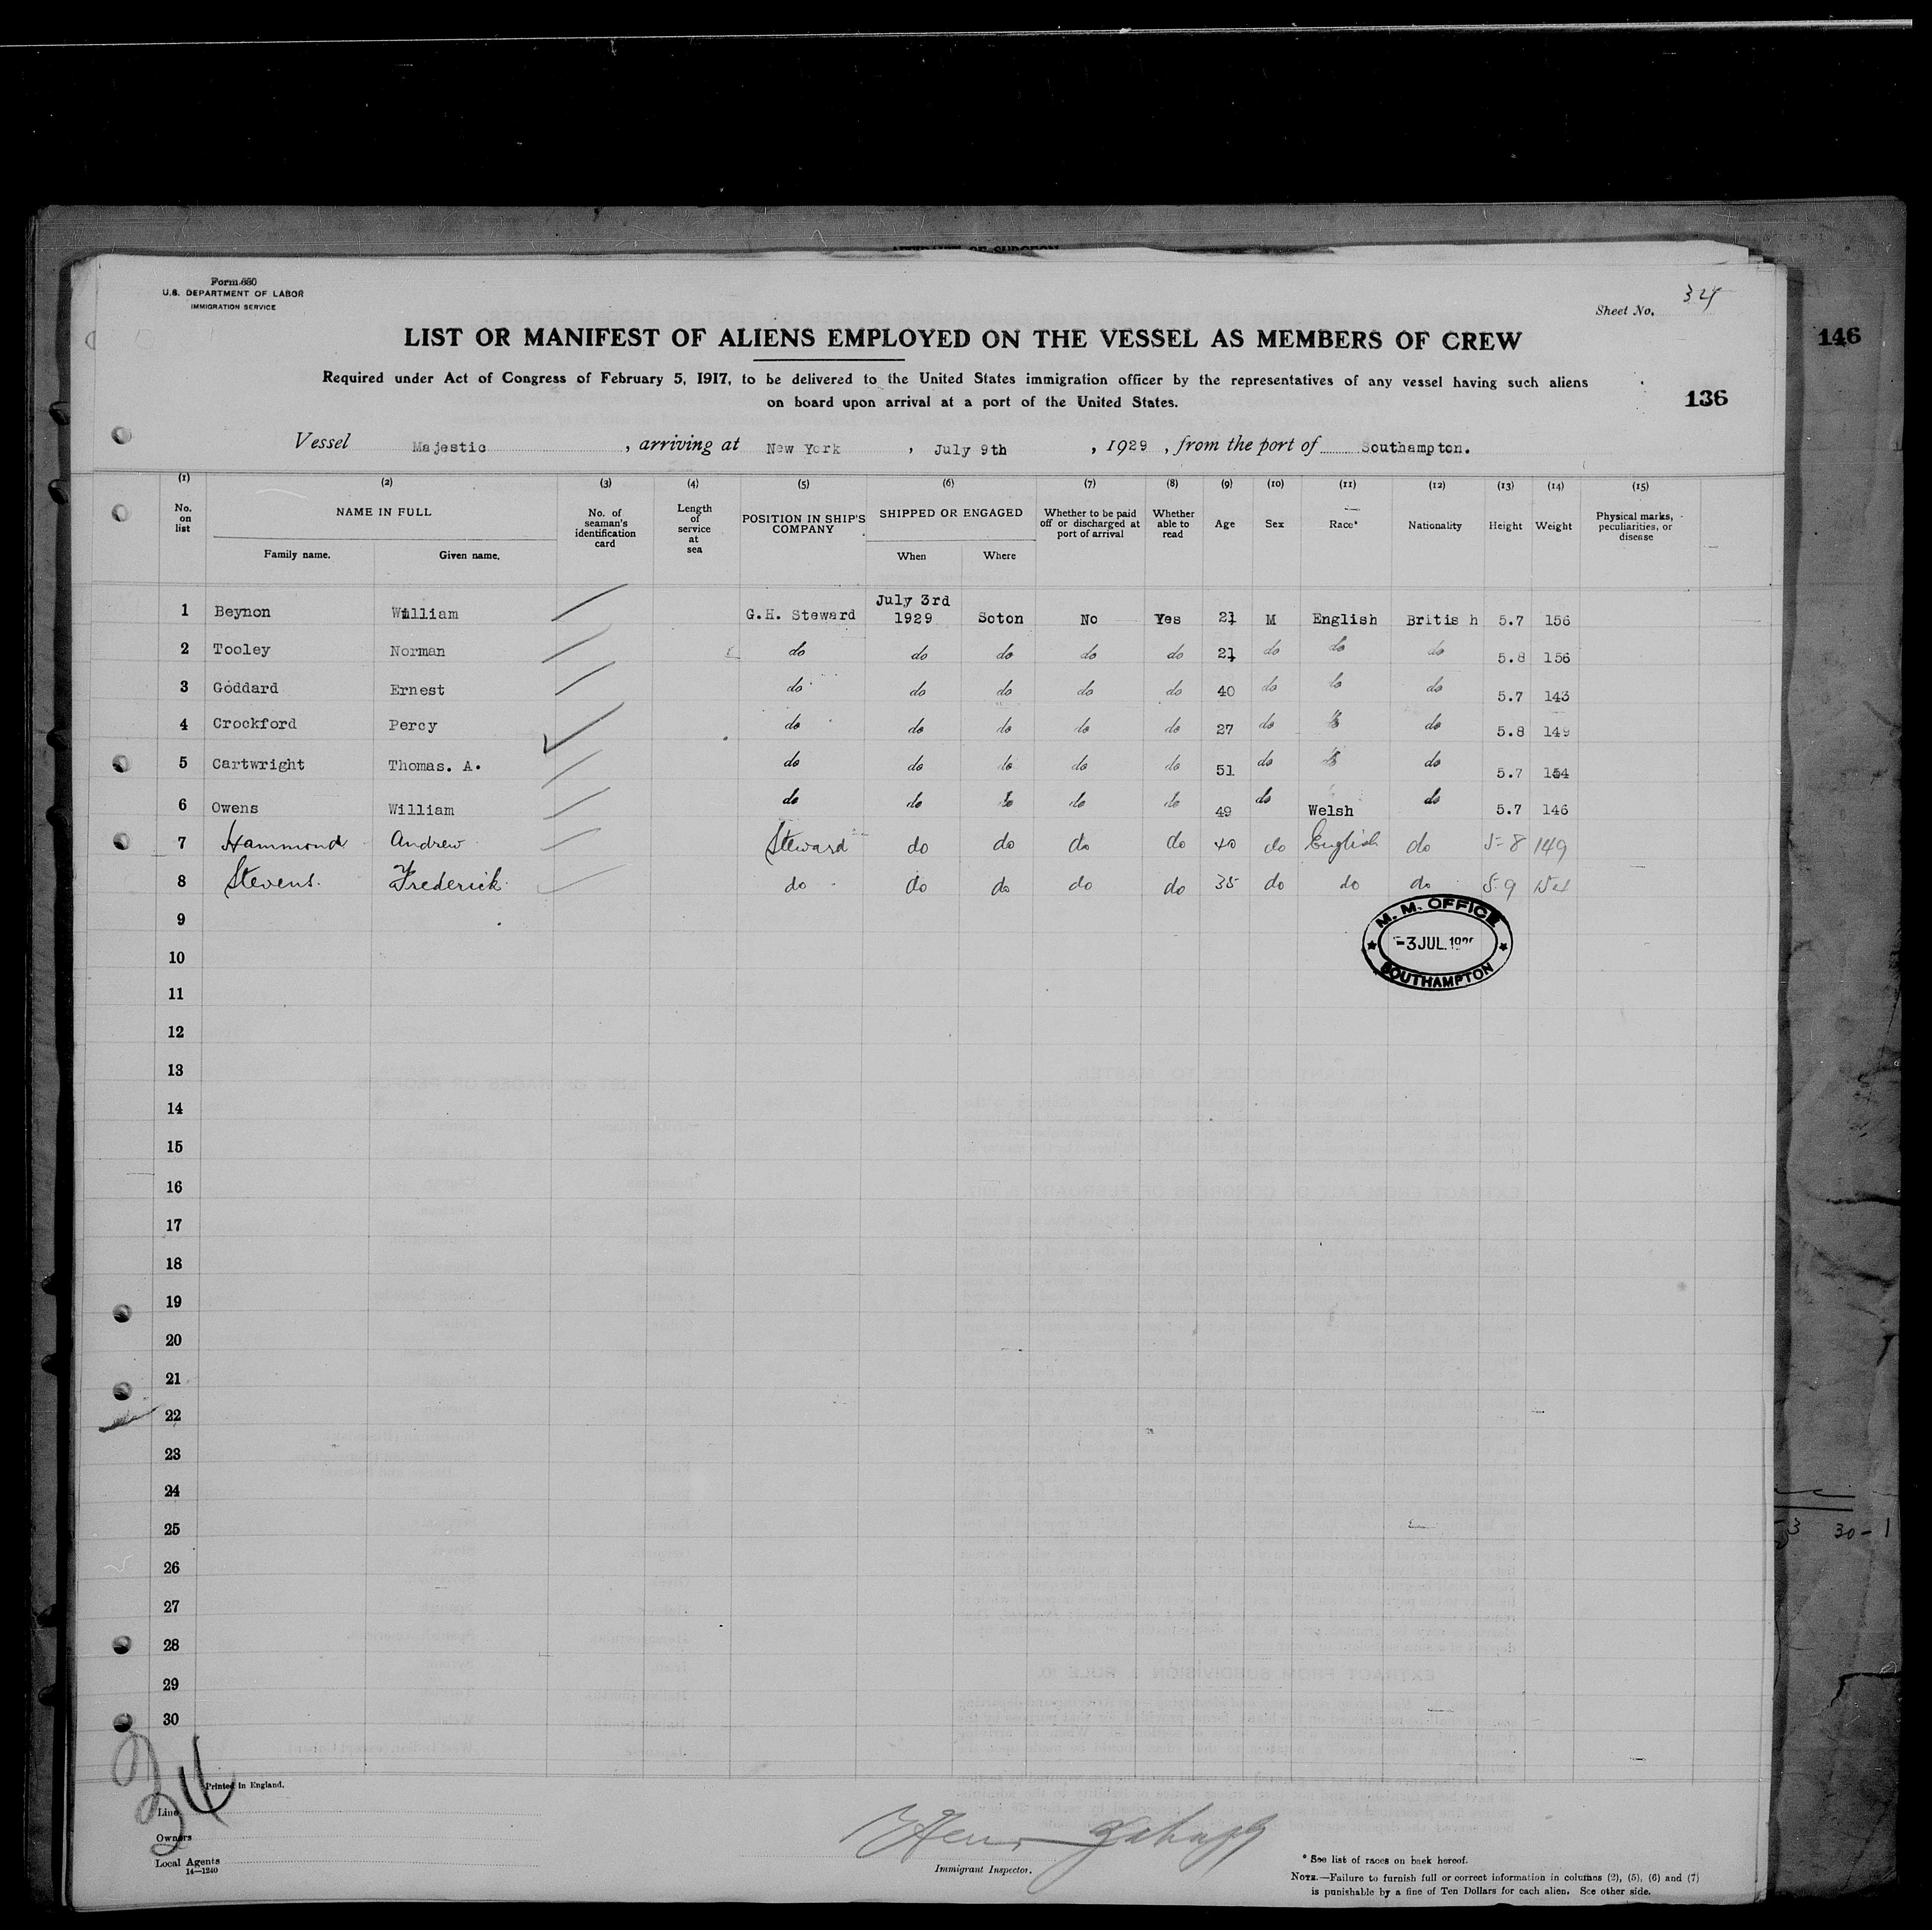 AFFIDAVIT OF SURGEON
Form 680
U.S. DEPARTMENT OF LABOR
IMMIGRATION SERVICE
Sheet No.
146
LIST OR MANIFEST OF ALIENS EMPLOYED ON THE VESSEL AS MEMBERS OF CREW
Required under Act of Congress of February 5, 1917, to be delivered to the United States immigration officer by the representatives of any vessel having such aliens
on board upon arrival at a port of the United States.
136
Vessel Majestic, arriving at New York, July 9th, 1929, from the port of Southampton.
(1) (2) (3) (4) (5) (6) (7) (8) (9) (10) (11) (12) (13) (14) (15)
No. on list NAME IN FULL Family name. Given name. No. of seaman's identification card Length of service at sea POSITION IN SHIP'S COMPANY SHIPPED OR ENGAGED When Where Whether to be paid off or discharged at port of arrival Whether able to read Age Sex Race* Nationality Height Weight Physical marks, peculiarities, or disease
1 Beynon William G.H. Steward July 3rd 1929 Soton No Yes 21 M English British 5.7 156
2 Tooley Norman do do do do do 21 do do do 5.8 156
3 Goddard Ernest do do do do do 40 do do do 5.7 143
4 Crockford Percy do do do do do 27 do do do 5.8 149
5 Cartwright Thomas. A. do do do do do 51 do do do 5.7 154
6 Owens William do do do do do 49 do Welsh do 5.7 146
7 Hammond Andrew Steward do do do do 40 do English do 5-8 149
8 Stevens. Frederick. do do do do do 35 do do do 5-9 154
M. M. OFFICE
-3 JUL. 192
SOUTHAMPTON
9
10
11
12
13
14
15
16
17
18
19
20
21
22
23
24
25
26
27
28
29
30
30-1
34
Printed in England.
Line
Owners
Local Agents
14—1240
Immigrant Inspector.
* See list of races on back hereof.
NOTE.—Failure to furnish full or correct information in columns (2), (5), (6) and (7)
is punishable by a fine of Ten Dollars for each alien. See other side.